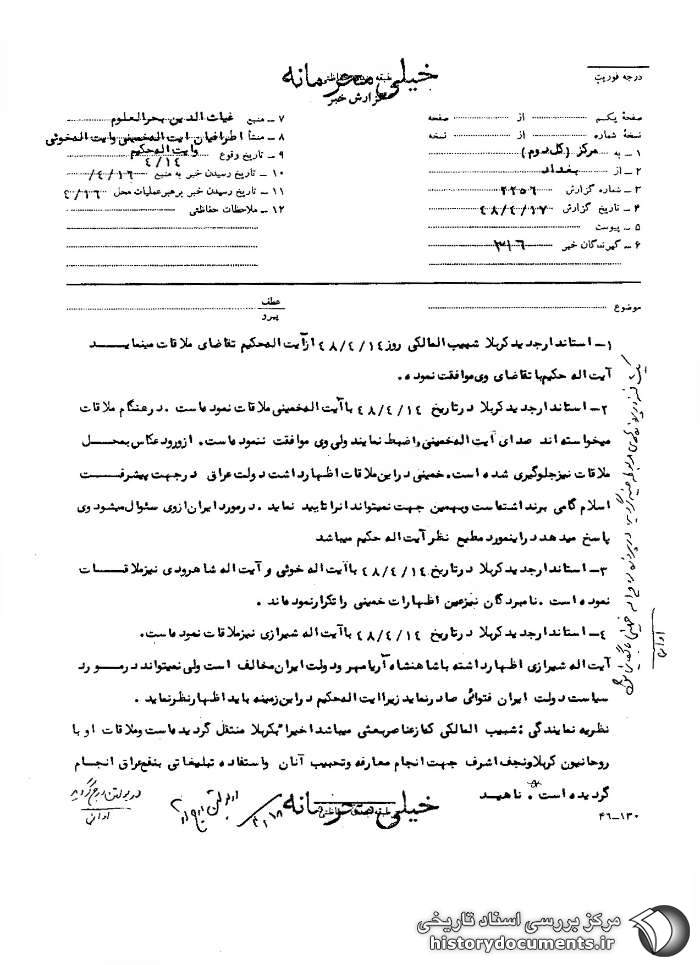 خیلی محرمانه
درجه فوریت
گزارش خبر
صفحهٔ یکم از صفحه
نسخهٔ شماره از نسخه
۱ – به مرکز (کل دوم)
۲ – از بغداد
۳ – شماره گزارش ۲۲۵۶
۴ – تاریخ گزارش ۴۸/۴/۱۷
۵ – پیوست
۶ – گیرندگان خبر ۳۱۶
۷ – منبع غیاث الدین بحرالعلوم
۸ – منشأ اطرافیان ایت اله خمینی وایت اله خوئی وایت اله حکیم
۹ – تاریخ وقوع ۴/۱۴
۱۰ – تاریخ رسیدن خبر به منبع ۴/۱۶
۱۱ – تاریخ رسیدن خبر برهبر عملیات محل ۴/۱۶
۱۲ – ملاحظات حفاظتی
موضوع
عطف
پیرو
۱– استاندار جدید کربلا شبیب المالکی روز ۴۸/۴/۱۴ از آیت اله حکیم تقاضای ملاقات مینماید
آیت اله حکیم با تقاضای وی موافقت نموده .
۲– استاندار جدید کربلا در تاریخ ۴۸/۴/۱۴ با آیت اله خمینی ملاقات نموده است . در هنگام ملاقات
میخواسته اند صدای آیت اله خمینی را ضبط نمایند ولی وی موافقت ننموده است . از ورود عکاس بمحل
ملاقات نیز جلوگیری شده است . خمینی در این ملاقات اظهار داشت دولت عراق در جهت پیشرفت
اسلام گامی برنداشته است و بهمین جهت نمیتواند انرا تایید نماید . در مورد ایران ازوی سئوال میشود وی
پاسخ میدهد در اینمورد مطیع نظر آیت اله حکیم میباشد
۳– استاندار جدید کربلا در تاریخ ۴۸/۴/۱۴ با آیت اله خوئی و آیت اله شاهرودی نیز ملاقات
نموده است . نامبردگان نیز عین اظهارات خمینی را تکرار نموده اند .
۴– استاندار جدید کربلا در تاریخ ۴۸/۴/۱۴ با آیت اله شیرازی نیز ملاقات نموده است.
آیت اله شیرازی اظهار داشته با شاهنشاه آریامهر و دولت ایران مخالف است ولی نمیتواند در مورد
سیاست دولت ایران فتوائی صادر نماید زیرا ایت اله حکیم در این زمینه باید اظهار نظر نماید .
نظریه نمایندگی : شبیب المالکی که از عناصر بعثی میباشد اخیرا بکربلا منتقل گردیده است و ملاقات او با
روحانیون کربلا و نجف اشرف جهت انجام معارفه و تحبیب آنان و استفاده تبلیغاتی بنفع عراق انجام
گردیده است . ناهید
خیلی محرمانه
۴۶–۱۳۰
در بولتن درج گردید
۴/۱۸
مرکز بررسی اسناد تاریخی
historydocuments.ir